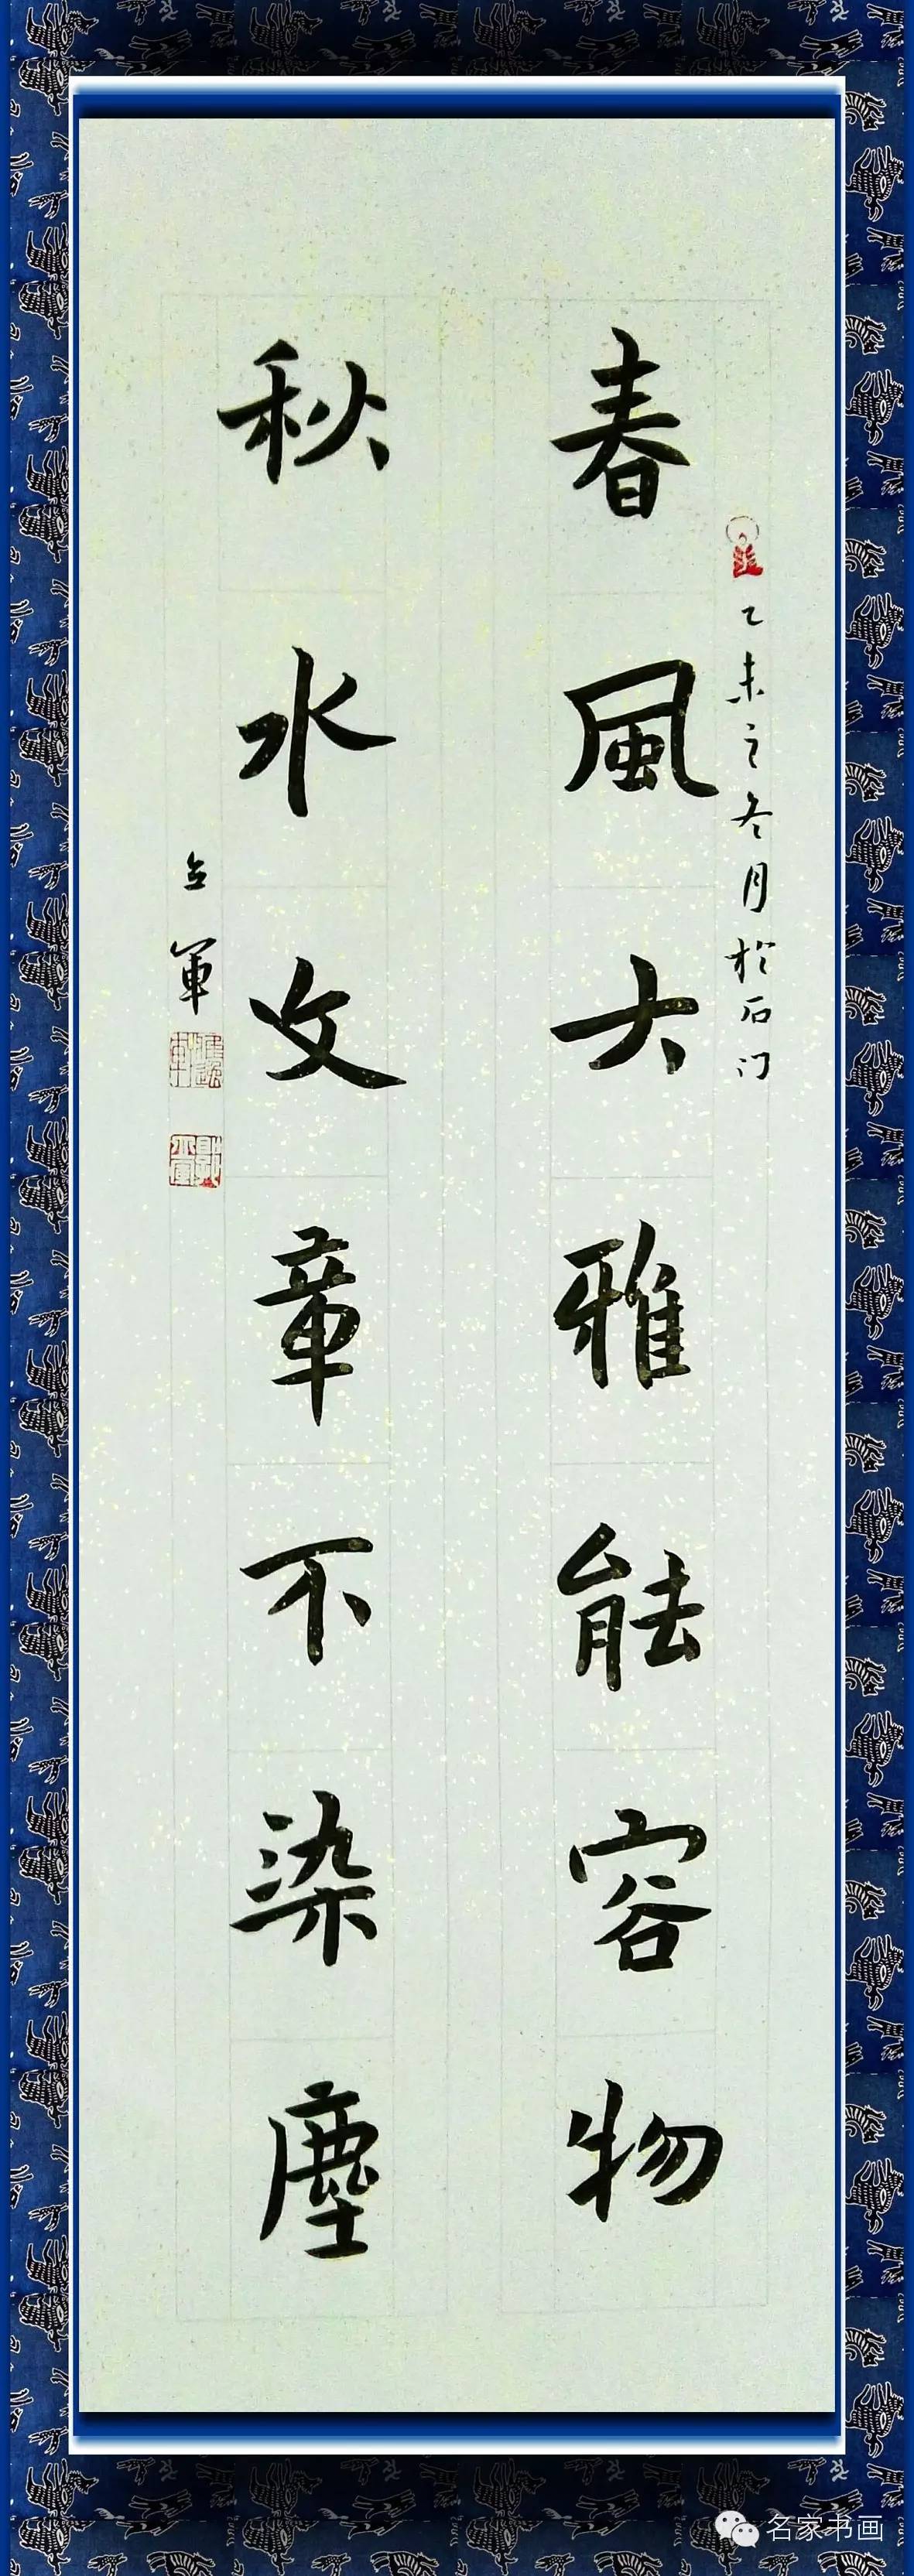 乙未之冬月於石门
春風大雅能容物
秋水文章不染塵
立軍
名家书画